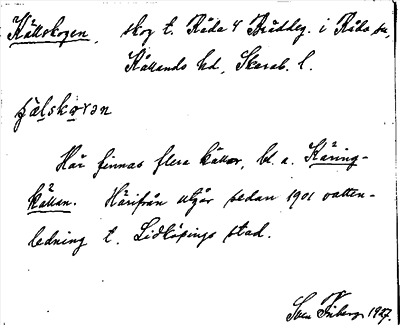 Källskogen, skog t. Råda 4 Bråddeg. i Råda sn,
Kållands hd, Skarab. l.
Här finnas flera källor, bl. a. Käring-
källan. Härifrån utgår sedan 1901 vatten-
ledning t. Lidköpings stad.
Sven Friberg 1927.